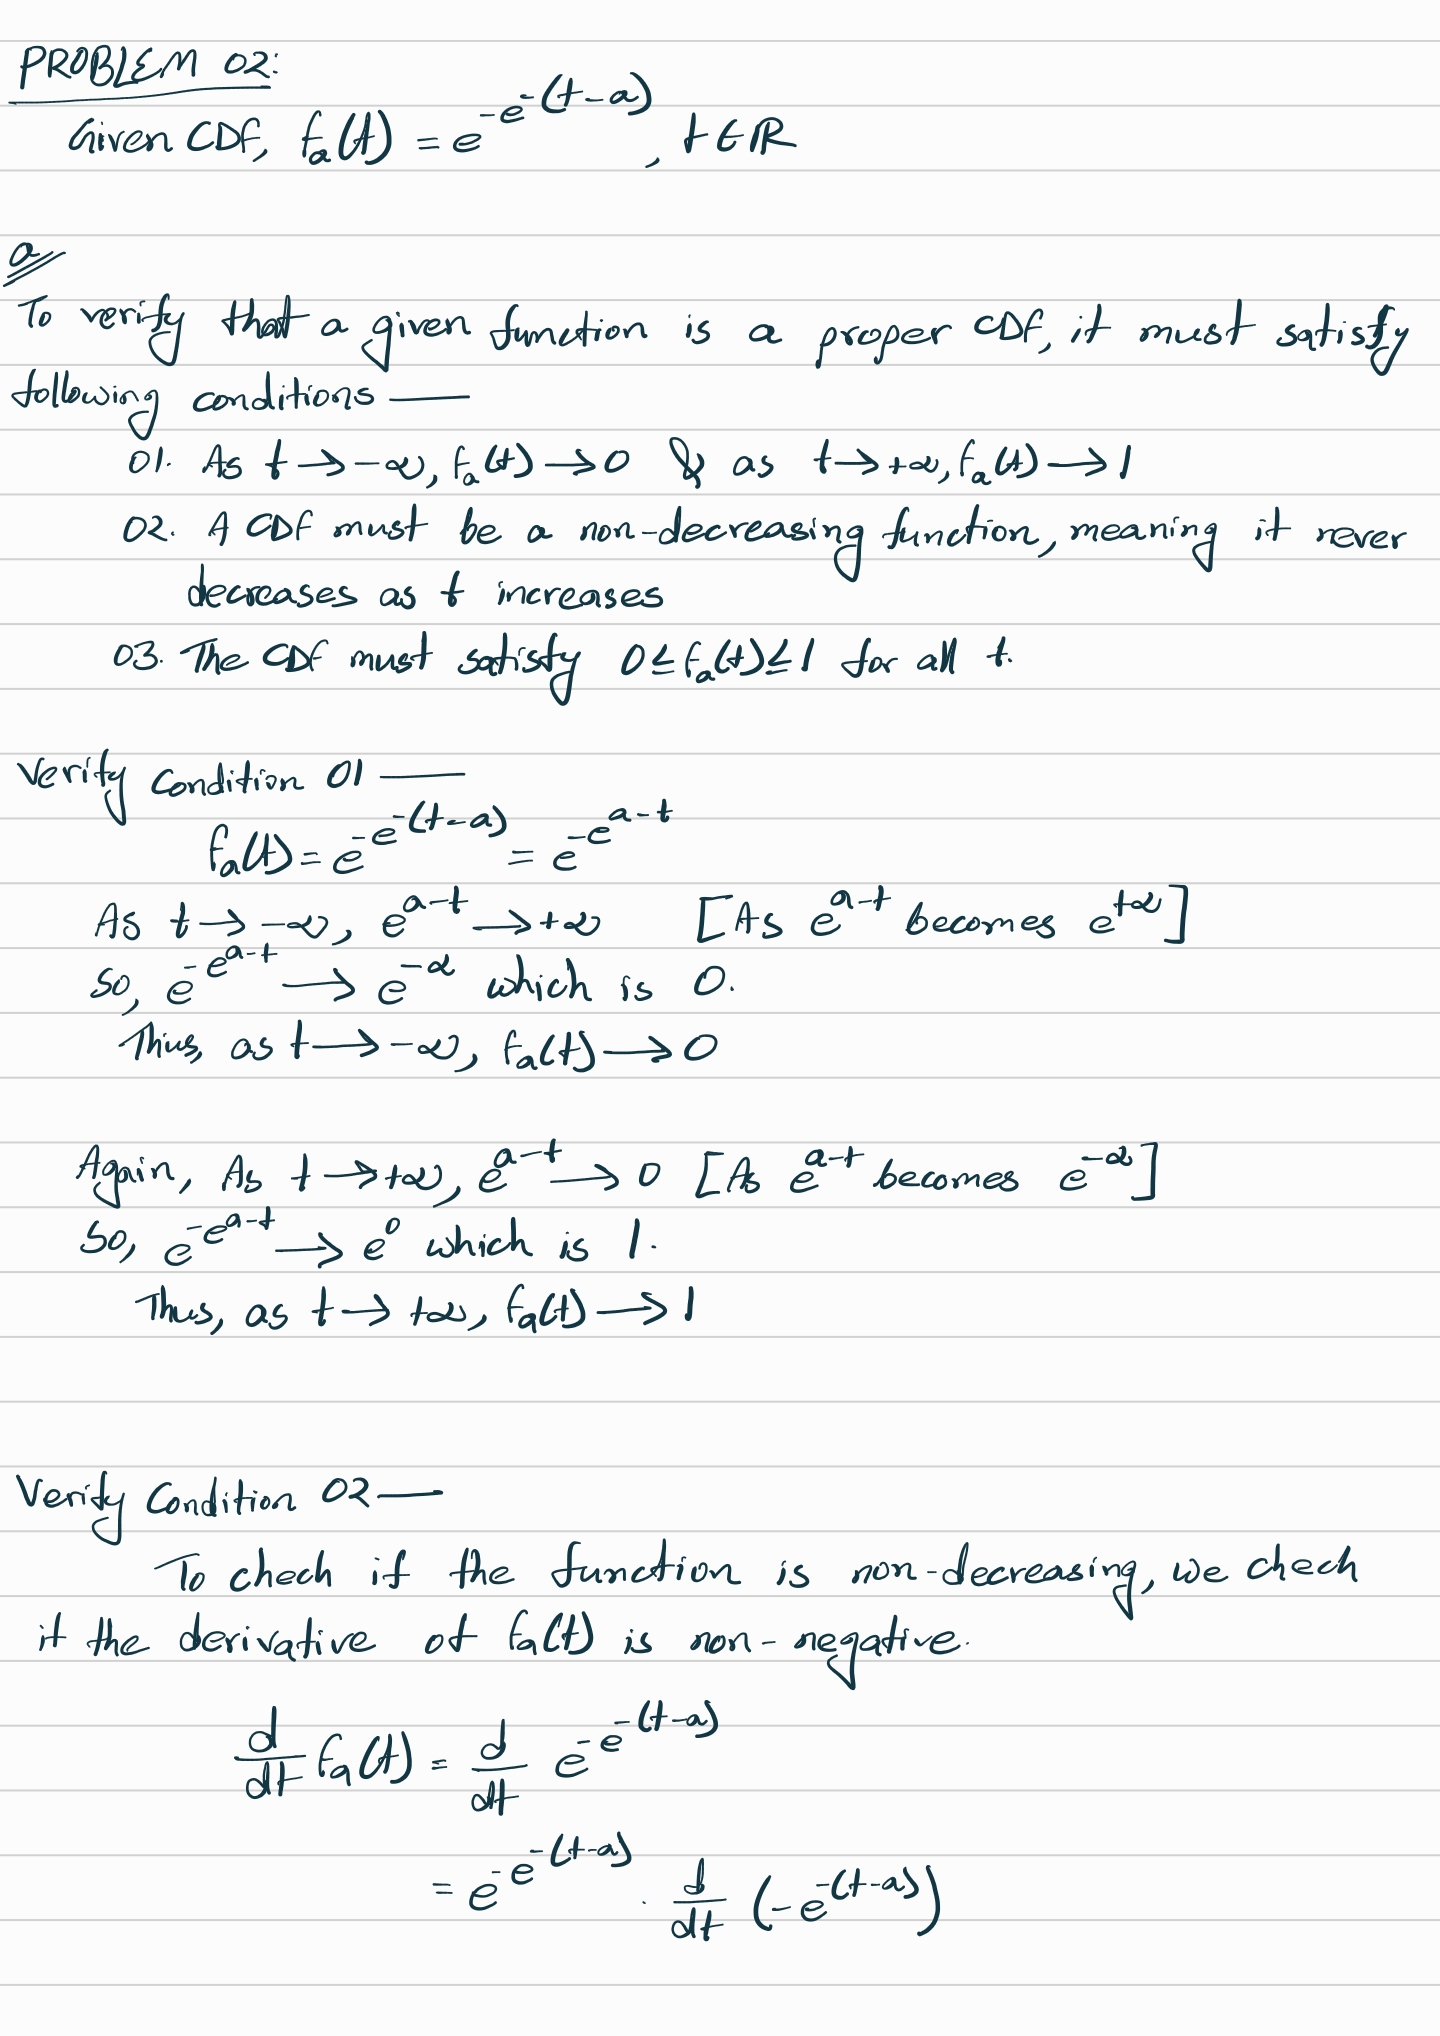 PROBLEM 02:
Given CDF, Fₐ(t) = e^{-e^{-(t-a)}}, t∈ℝ
a
To verify that a given function is a proper CDF, it must satisfy
following conditions —
01. As t → -∞, Fₐ(t) → 0 & as t → +∞, Fₐ(t) → 1
02. A CDF must be a non-decreasing function, meaning it never
decreases as t increases
03. The CDF must satisfy 0 ≤ Fₐ(t) ≤ 1 for all t.
Verify Condition 01 —
Fₐ(t) = e^{-e^{-(t-a)}} = e^{-e^{a-t}}
As t → -∞, e^{a-t} → +∞ [As e^{a-t} becomes e^{+∞}]
So, e^{-e^{a-t}} → e^{-∞} which is 0.
Thus, as t → -∞, Fₐ(t) → 0
Again, As t → +∞, e^{a-t} → 0 [As e^{a-t} becomes e^{-∞}]
So, e^{-e^{a-t}} → e^{0} which is 1.
Thus, as t → +∞, Fₐ(t) → 1
Verify Condition 02 —
To check if the function is non-decreasing, we check
if the derivative of Fₐ(t) is non-negative.
d/dt Fₐ(t) = d/dt e^{-e^{-(t-a)}}
= e^{-e^{-(t-a)}} · d/dt (-e^{-(t-a)})